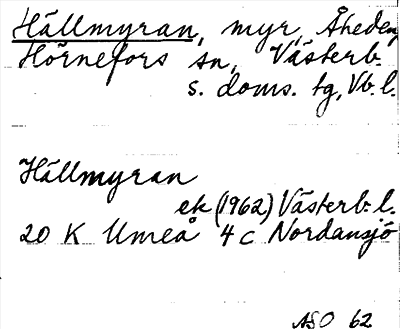 Hällmyran, myr, Åheden,
Hörnefors sn, Västerb.
s. doms. tg, Vb. l.
Hällmyran
ek (1962) Västerb. l.
20 K Umeå 4 c Nordansjö
ASO 62